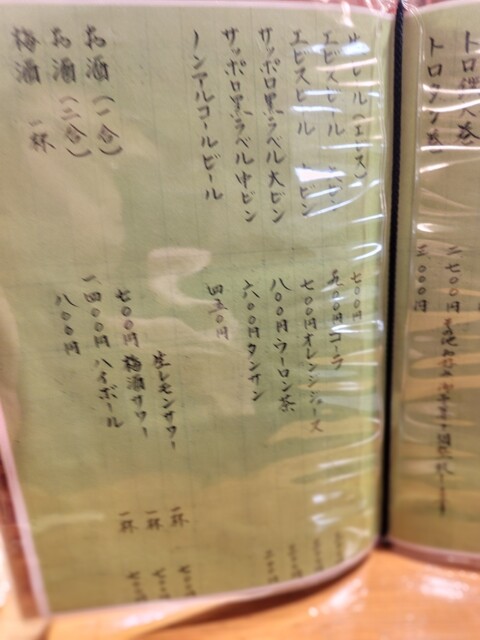 トロ鉄火巻
トロタク巻
二七〇〇円
三〇〇〇円
生ビール(エビス) 七〇〇円
エビスビール 大ビン 九〇〇円
エビスビール ビン 七〇〇円
サッポロ黒ラベル大ビン 八〇〇円
サッポロ黒ラベル中ビン 六〇〇円
ノンアルコールビール 四五〇円
お酒(一合) 七〇〇円
お酒(二合) 一四〇〇円
梅酒 一杯 八〇〇円
コーラ
オレンジジュース
ウーロン茶
タンサン
生レモンサワー 一杯 七〇〇
梅酒サワー 一杯 七〇〇
ハイボール 一杯 七〇〇